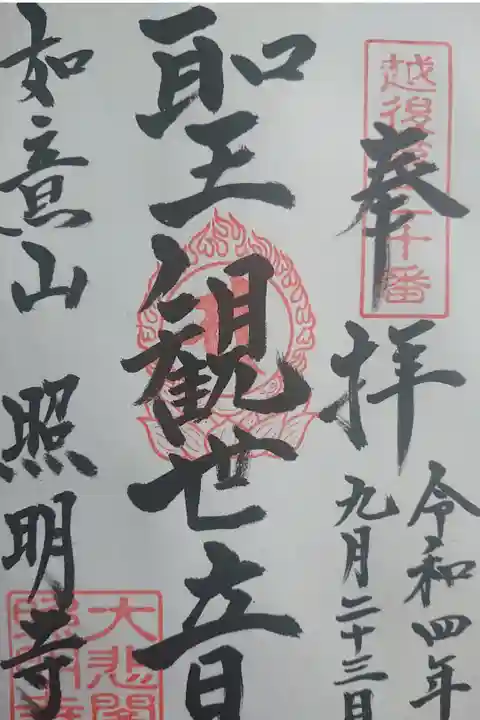 奉拝
令和四年
九月二十三日
聖観世音
如意山 照明寺
大悲閣